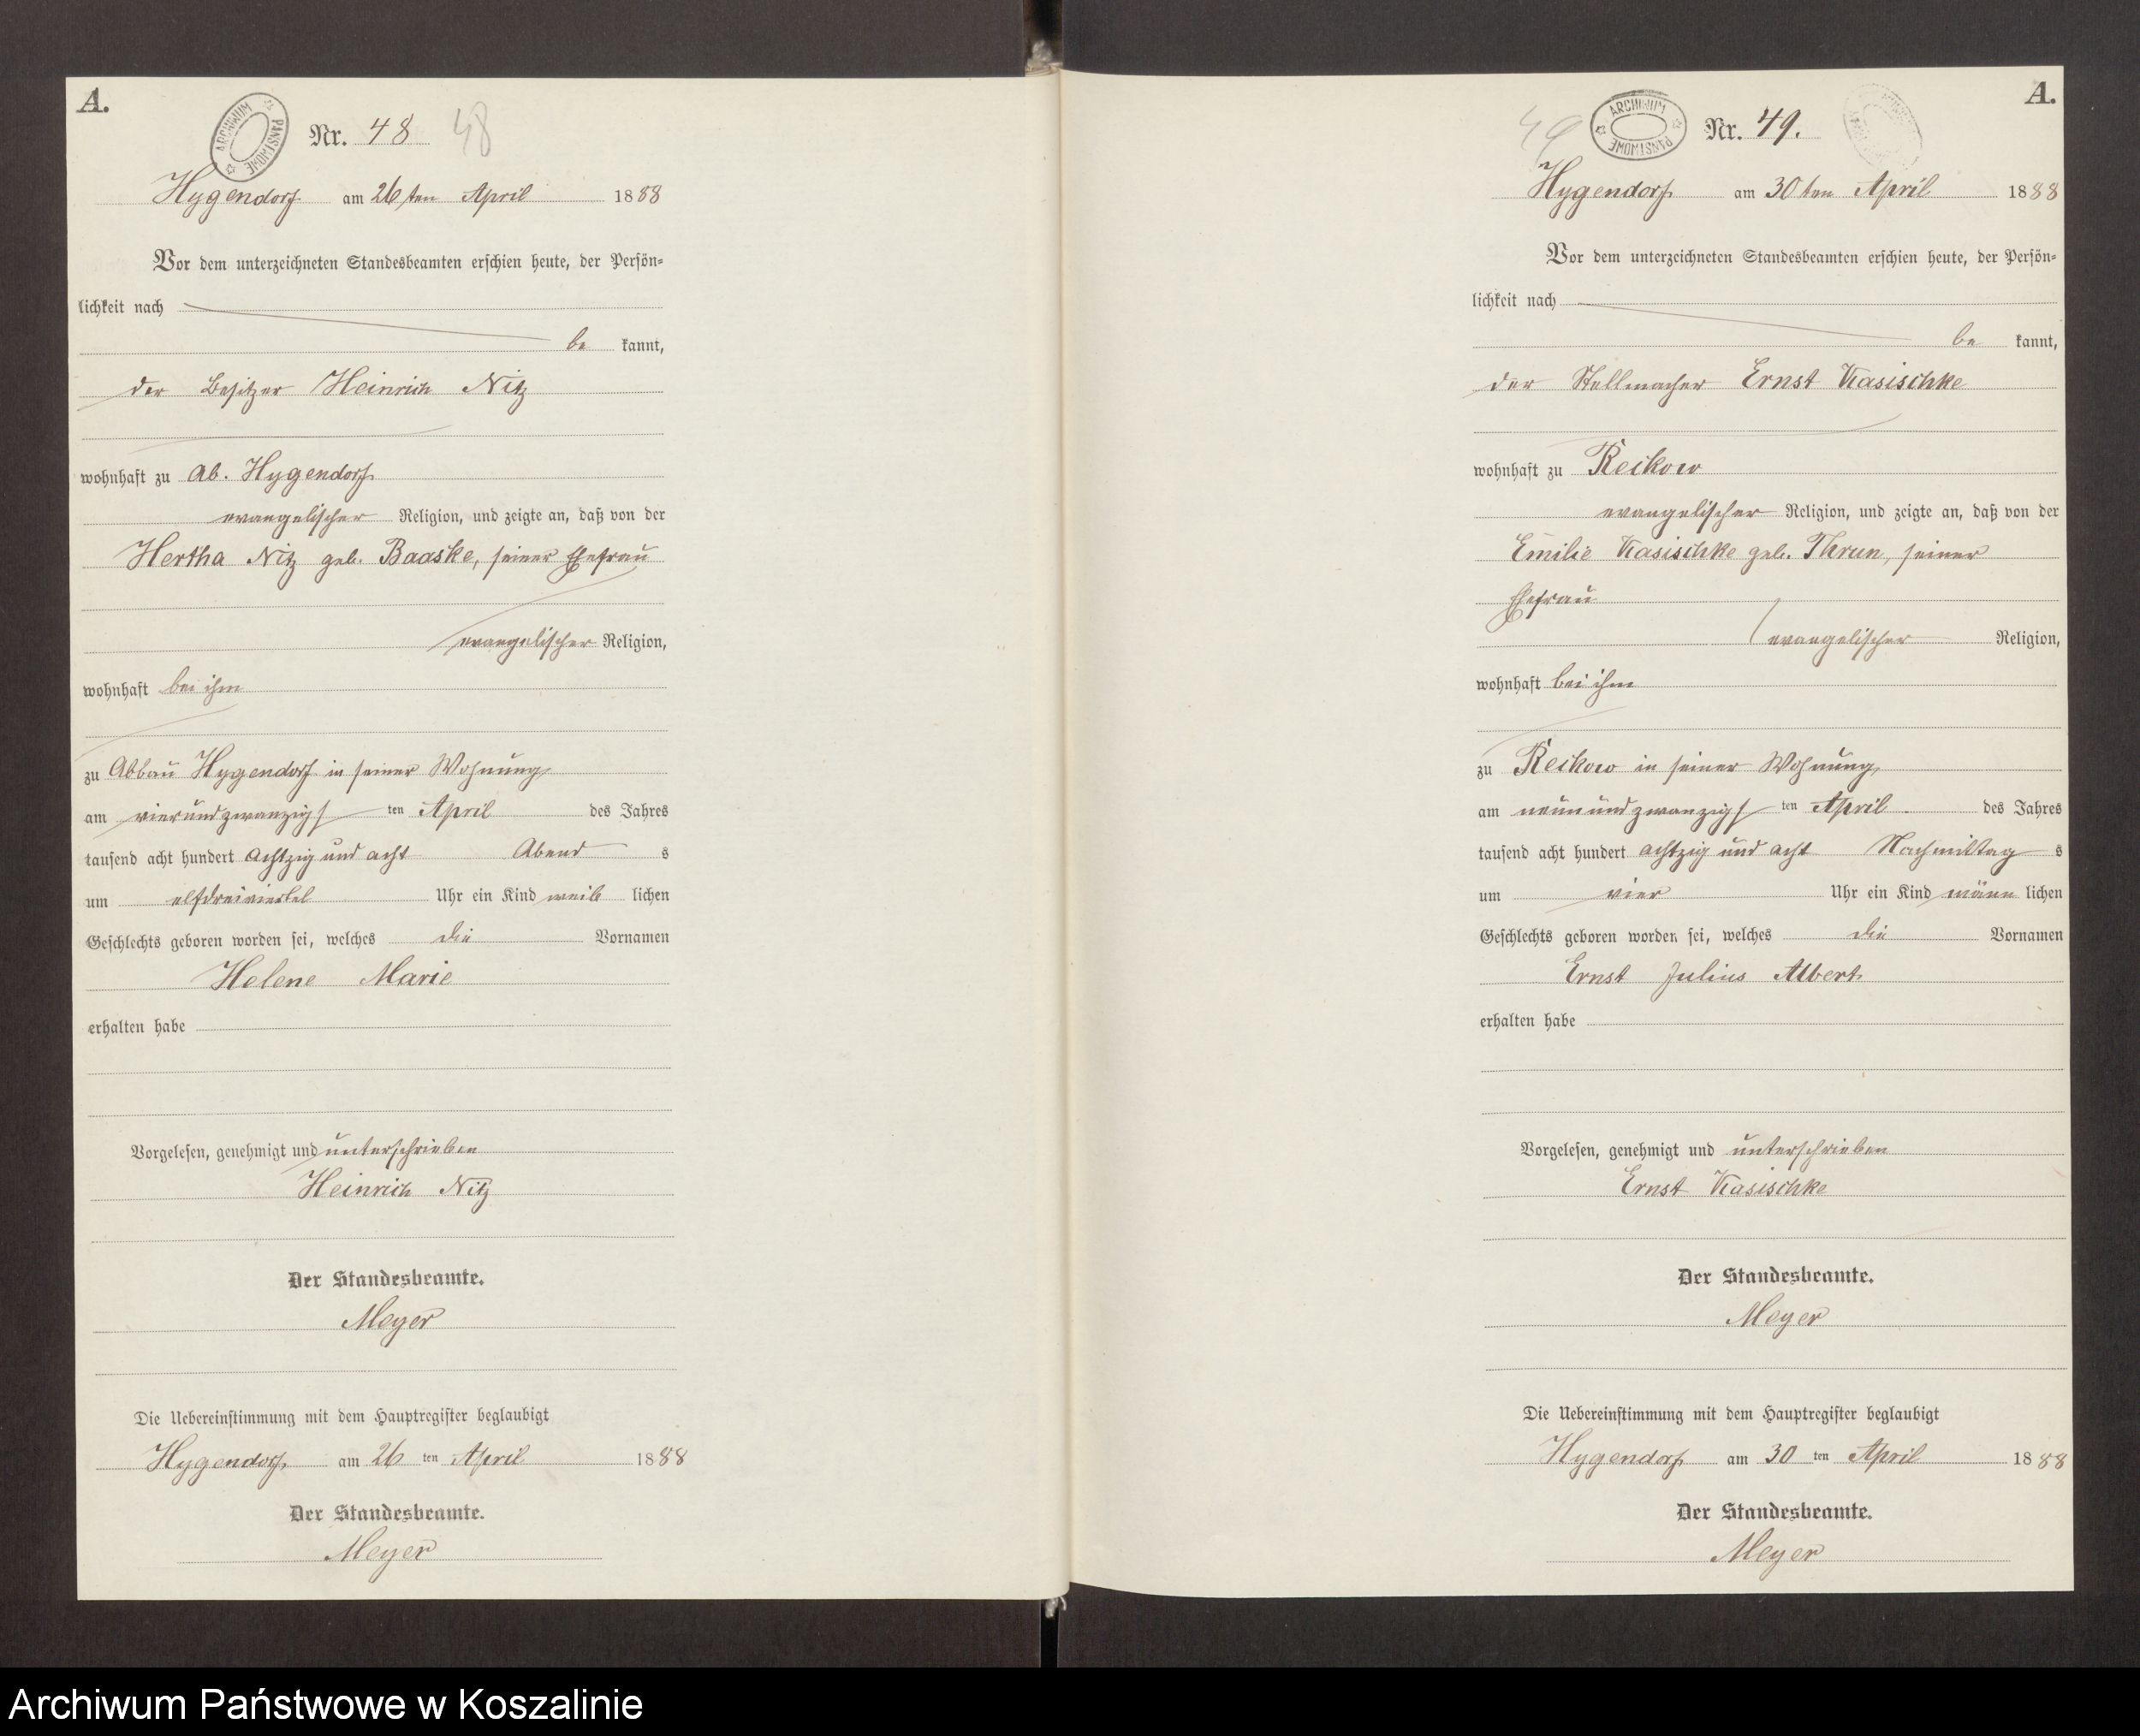 A.
ARCHIWUM PAŃSTWOWE
Nr. 48 48
Hygendorf am 26ten April 1888
Vor dem unterzeichneten Standesbeamten erschien heute, der Persön-
lichkeit nach
be kannt,
der Besitzer Heinrich Nitz
wohnhaft zu Ab. Hygendorf
evangelischer Religion, und zeigte an, daß von der
Hertha Nitz geb. Baaske, seiner Ehefrau
evangelischer Religion,
wohnhaft bei ihm
zu Abbau Hygendorf in seiner Wohnung
am vierundzwanzigsten April des Jahres
tausend acht hundert achtzig und acht Abends
um elfdreiviertel Uhr ein Kind weiblichen
Geschlechts geboren worden sei, welches die Vornamen
Helene Marie
erhalten habe
Vorgelesen, genehmigt und unterschrieben
Heinrich Nitz
Der Standesbeamte.
Meyer
Die Uebereinstimmung mit dem Hauptregister beglaubigt
Hygendorf am 26 ten April 1888
Der Standesbeamte.
Meyer
A.
49 ARCHIWUM PAŃSTWOWE Nr. 49.
Hygendorf am 30ten April 1888
Vor dem unterzeichneten Standesbeamten erschien heute, der Persön-
lichkeit nach
be kannt,
der Stellmacher Ernst Kasischke
wohnhaft zu Reikow
evangelischer Religion, und zeigte an, daß von der
Emilie Kasischke geb. Thrun, seiner
Ehefrau
evangelischer Religion,
wohnhaft bei ihm
zu Reikow in seiner Wohnung
am neunundzwanzigsten April des Jahres
tausend acht hundert achtzig und acht Nachmittags
um vier Uhr ein Kind männlichen
Geschlechts geboren worden sei, welches die Vornamen
Ernst Julius Albert
erhalten habe
Vorgelesen, genehmigt und unterschrieben
Ernst Kasischke
Der Standesbeamte.
Meyer
Die Uebereinstimmung mit dem Hauptregister beglaubigt
Hygendorf am 30 ten April 1888
Der Standesbeamte.
Meyer
Archiwum Państwowe w Koszalinie